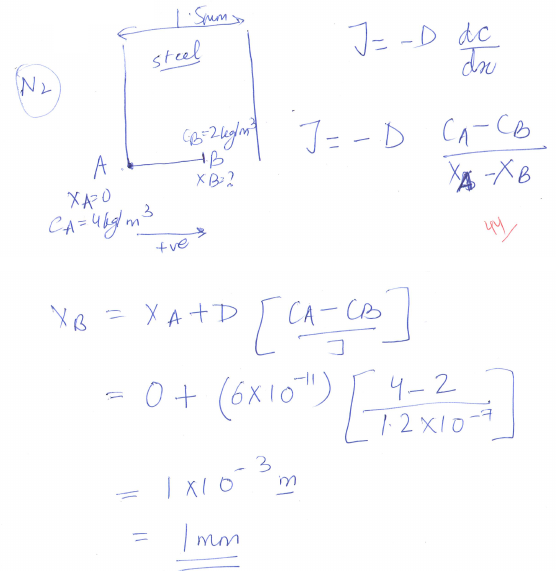 1.5mm
steel
N2
J = -D dc/dx
CB=2kg/m³
A B
XB=?
XA=0
CA=4kg/m³
+ve
J = -D (CA-CB)/(XA-XB)
44/
XB = XA+D [(CA-CB)/J]
= 0+ (6X10⁻¹¹) [(4-2)/(1.2X10⁻⁷)]
= 1X10⁻³ m
= 1mm